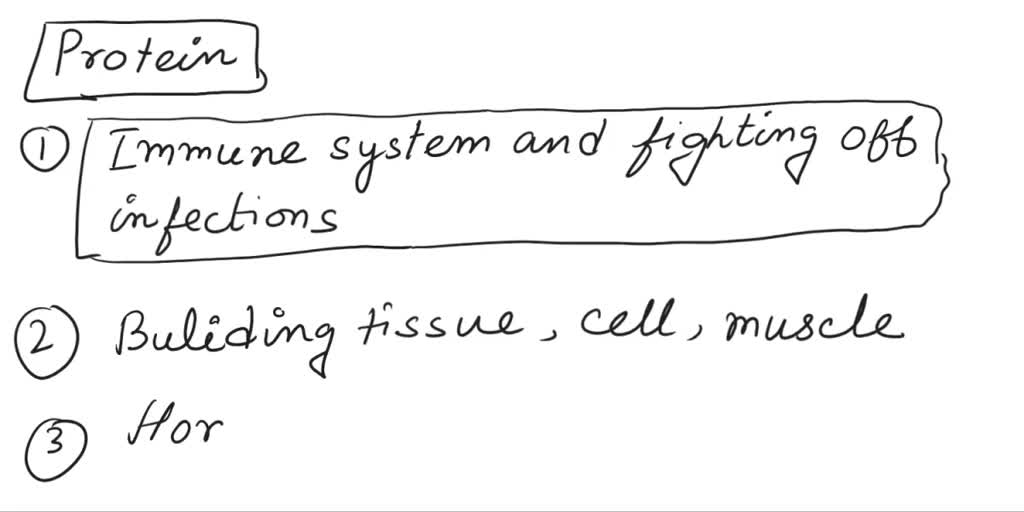 Protein
① Immune system and fighting off
infections
② Buliding tissue, cell, muscle
③ Hor